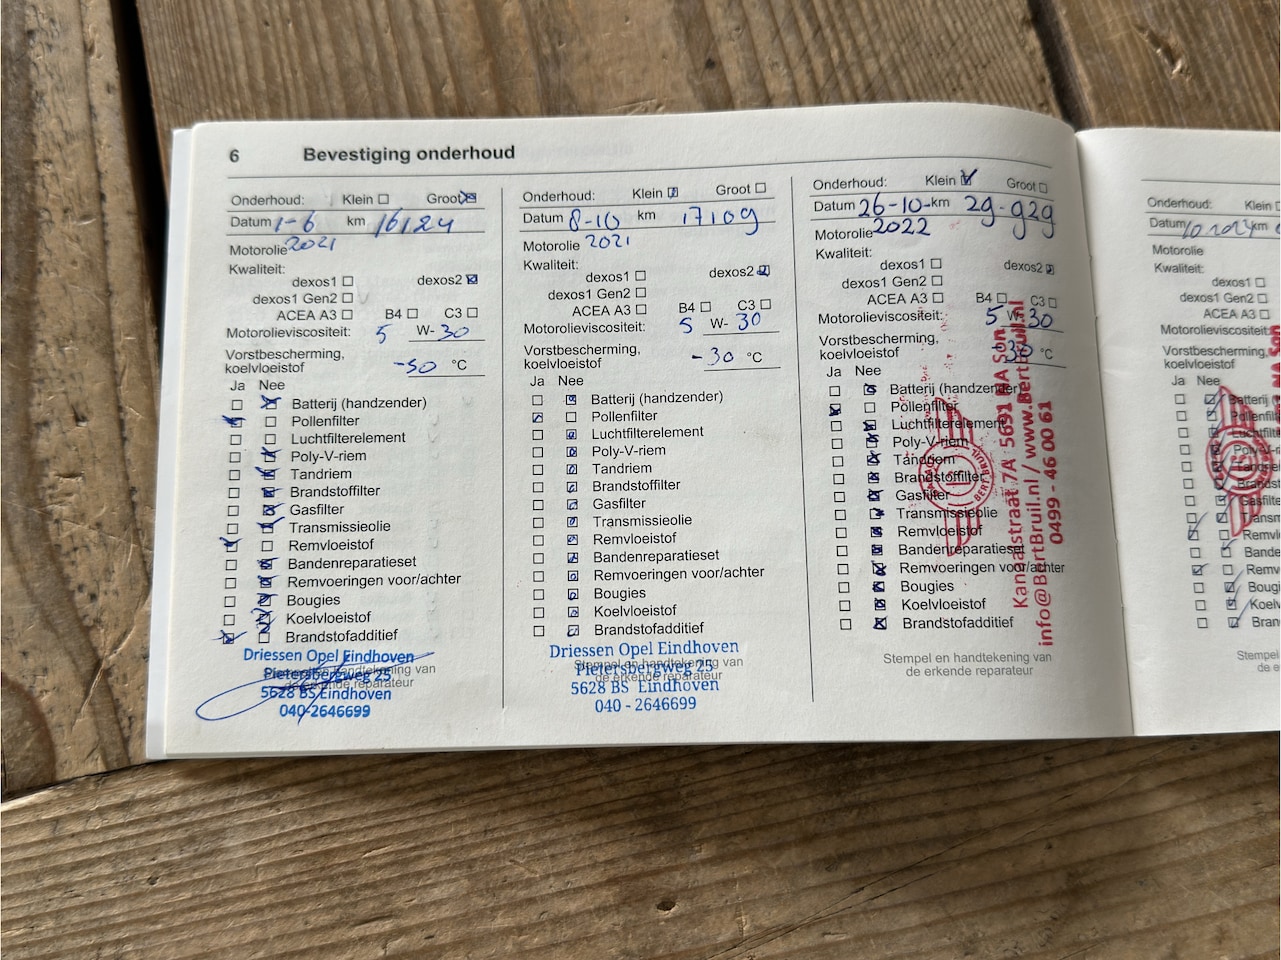 6 Bevestiging onderhoud
Onderhoud: Klein Groot
Datum 1-6 km 16124
2021
Motorolie
Kwaliteit:
dexos1 dexos2
dexos1 Gen2
ACEA A3 B4 C3
Motorolieviscositeit: 5 W- 30
Vorstbescherming,
koelvloeistof -50 °C
Ja Nee
Batterij (handzender)
Pollenfilter
Luchtfilterelement
Poly-V-riem
Tandriem
Brandstoffilter
Gasfilter
Transmissieolie
Remvloeistof
Bandenreparatieset
Remvoeringen voor/achter
Bougies
Koelvloeistof
Brandstofadditief
Stempel en handtekening van
de erkende reparateur
Driessen Opel Eindhoven
Pietersbergweg 25
5628 BS Eindhoven
040-2646699
Onderhoud: Klein Groot
Datum 8-10 km 17109
Motorolie 2021
Kwaliteit:
dexos1 dexos2
dexos1 Gen2
ACEA A3 B4 C3
Motorolieviscositeit: 5 W- 30
Vorstbescherming,
koelvloeistof -30 °C
Ja Nee
Batterij (handzender)
Pollenfilter
Luchtfilterelement
Poly-V-riem
Tandriem
Brandstoffilter
Gasfilter
Transmissieolie
Remvloeistof
Bandenreparatieset
Remvoeringen voor/achter
Bougies
Koelvloeistof
Brandstofadditief
Stempel en handtekening van
de erkende reparateur
Driessen Opel Eindhoven
Pietersbergweg 25
5628 BS Eindhoven
040 - 2646699
Onderhoud: Klein Groot
Datum 26-10- km 29-929
Motorolie 2022
Kwaliteit:
dexos1 dexos2
dexos1 Gen2
ACEA A3 B4 C3
Motorolieviscositeit: 5 W- 30
Vorstbescherming,
koelvloeistof -30 °C
Ja Nee
Batterij (handzender)
Pollenfilter
Luchtfilterelement
Poly-V-riem
Tandriem
Brandstoffilter
Gasfilter
Transmissieolie
Remvloeistof
Bandenreparatieset
Remvoeringen voor/achter
Bougies
Koelvloeistof
Brandstofadditief
Stempel en handtekening van
de erkende reparateur
BERT BRUIL
Kanaalstraat 7A 5691 NA Son
info@BertBruil.nl / www.BertBruil.nl
0499 - 46 00 61
Onderhoud: Klein
Datum km
Motorolie
Kwaliteit:
dexos1
dexos1 Gen2
ACEA A3
Motorolieviscositeit:
Vorstbescherming,
koelvloeistof
Ja Nee